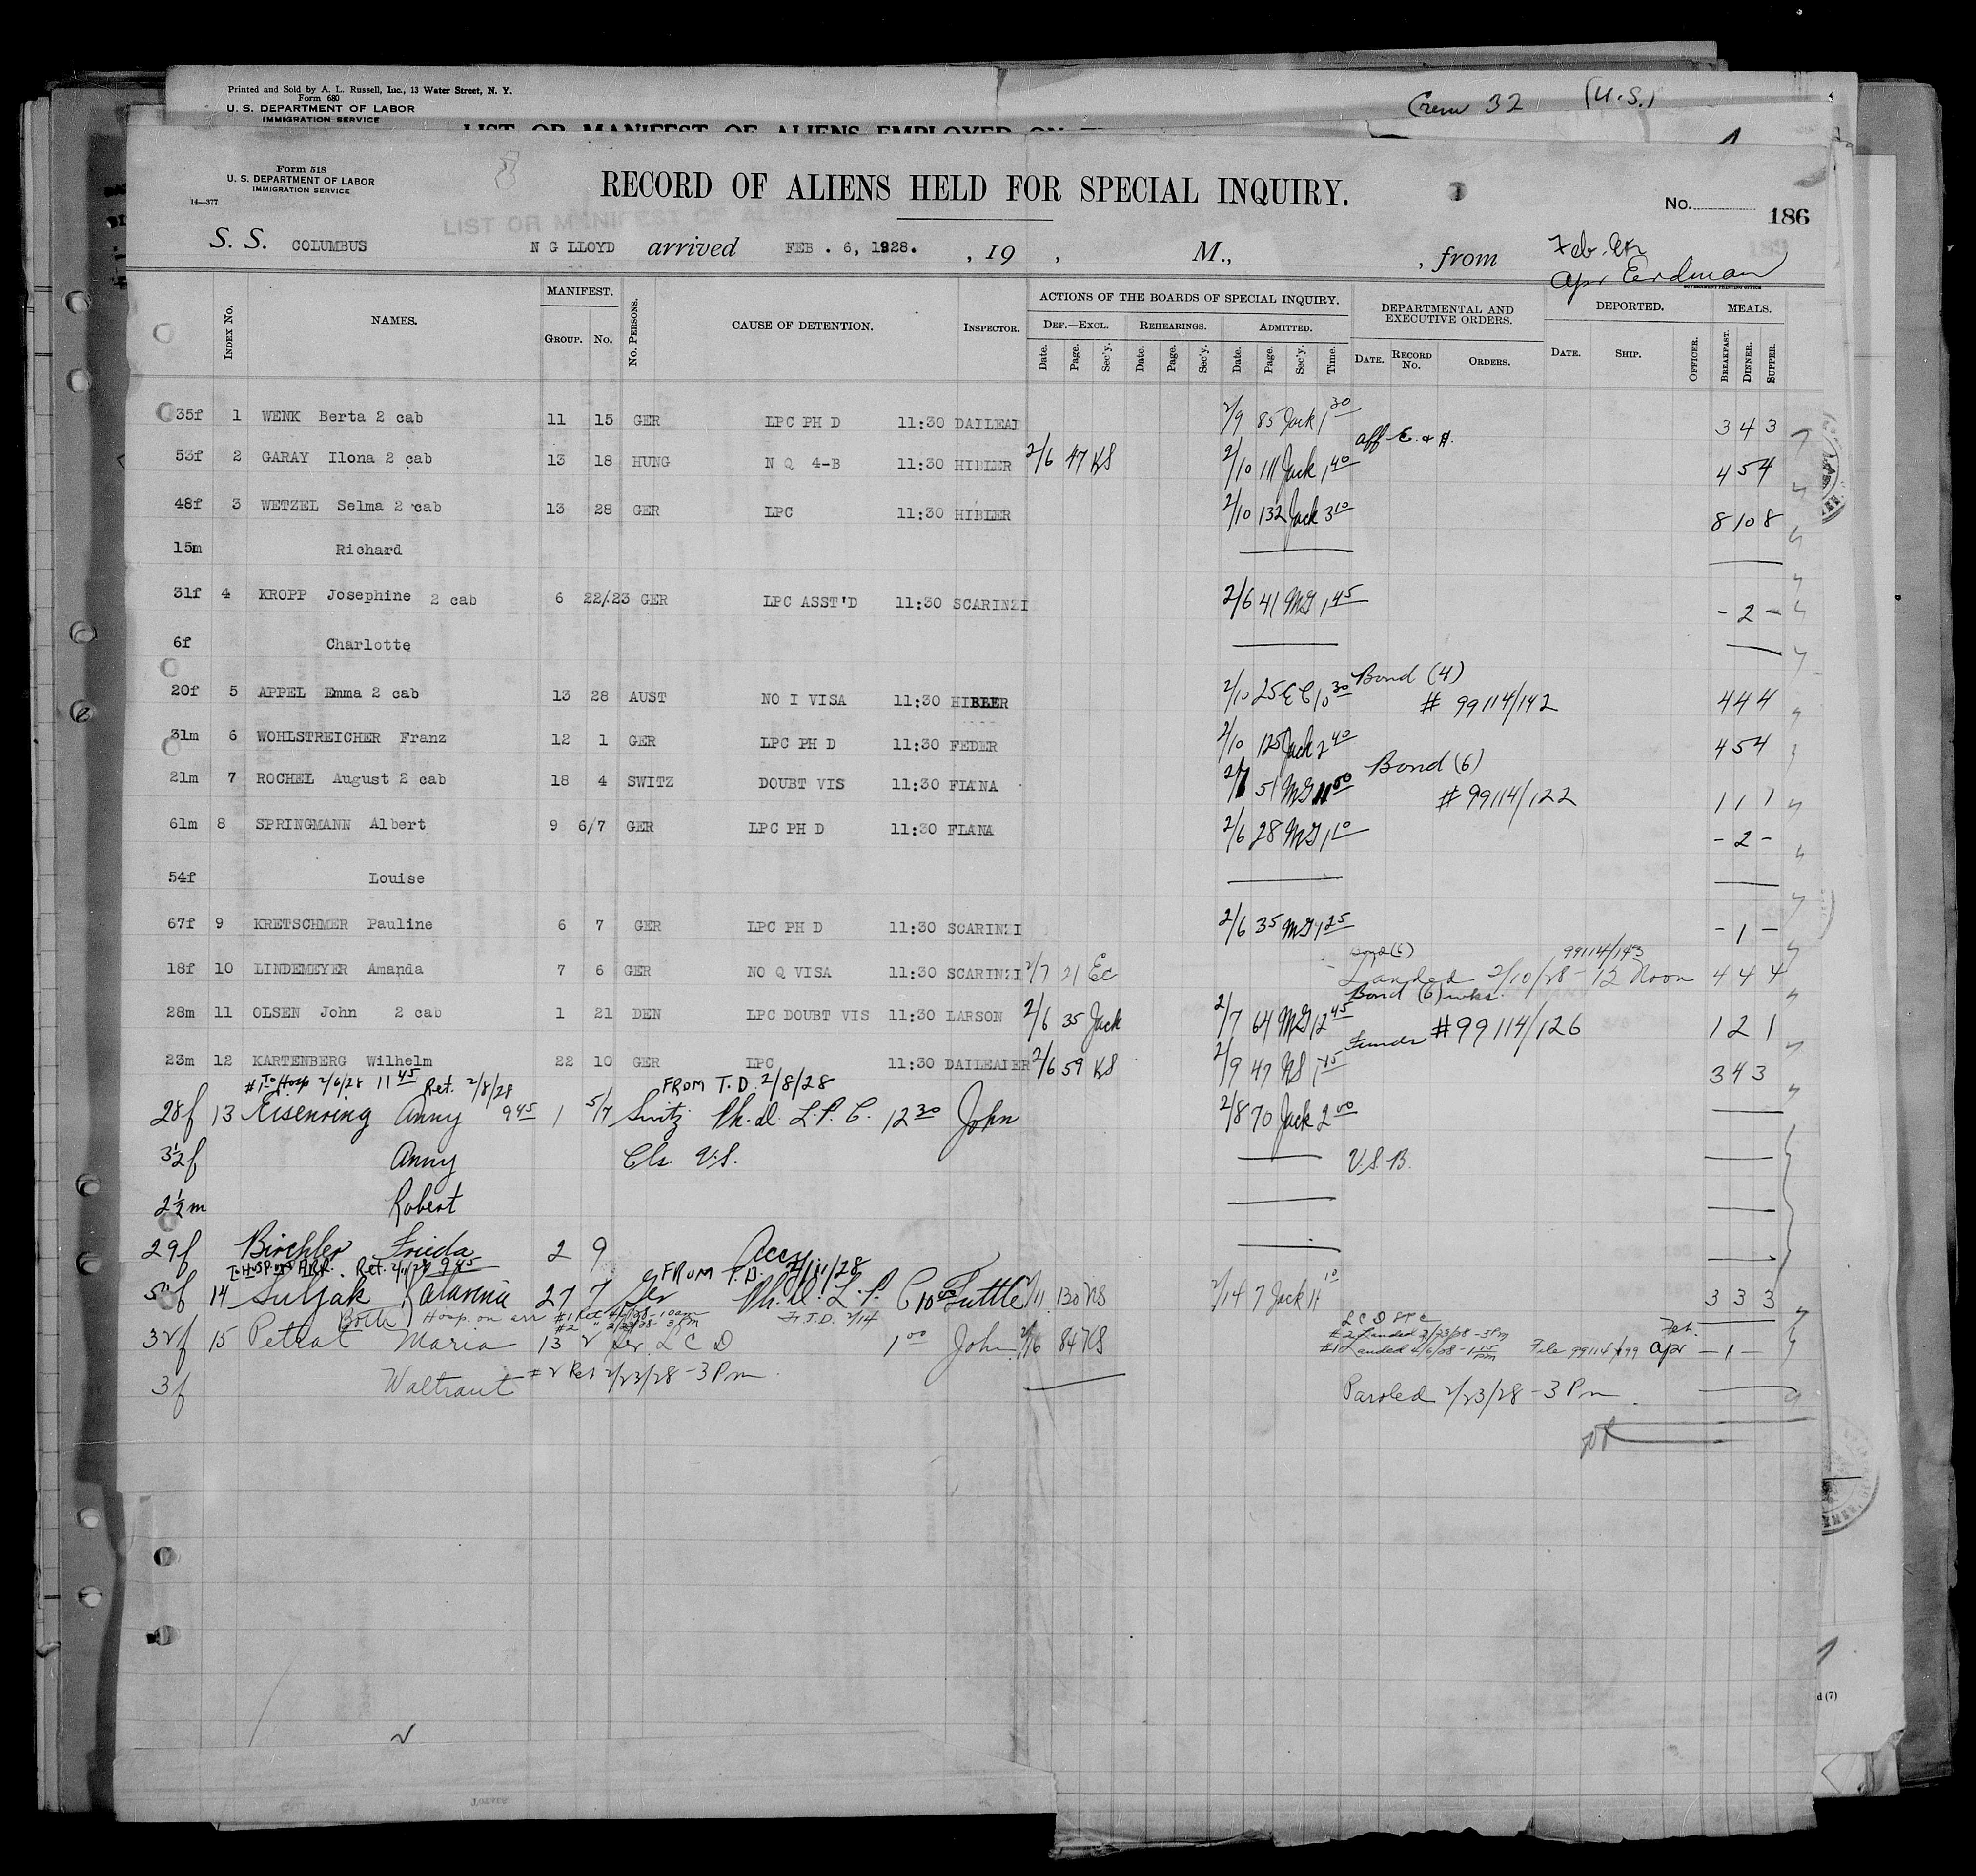 Printed and Sold by A. L. Russell, Inc., 13 Water Street, N. Y.
Form 680
U. S. DEPARTMENT OF LABOR
IMMIGRATION SERVICE
LIST OR MANIFEST OF ALIENS EMPLOYED ON
Crew 32 (U.S.)
Form 518
U. S. DEPARTMENT OF LABOR
IMMIGRATION SERVICE
14—377
RECORD OF ALIENS HELD FOR SPECIAL INQUIRY.
No. 186
LIST OR MANIFEST OF ALIENS
S. S. COLUMBUS N G LLOYD arrived FEB . 6, 1928. , 19 , M., , from
Feb.
Apr Erdman
GOVERNMENT PRINTING OFFICE
Index No. NAMES. MANIFEST. Group. No. No. Persons. CAUSE OF DETENTION. Inspector. ACTIONS OF THE BOARDS OF SPECIAL INQUIRY. DEPARTMENTAL AND EXECUTIVE ORDERS. DEPORTED. MEALS.
Def.—Excl. Rehearings. Admitted.
Date. Page. Sec'y. Date. Page. Sec'y. Date. Page. Sec'y. Time. Date. Record No. Orders. Date. Ship. Officer. Breakfast. Dinner. Supper.
35f 1 WENK Berta 2 cab 11 15 GER LPC PH D 11:30 DAILEAI 2/9 85 Jack 1 30 3 4 3
aff E. & A.
53f 2 GARAY Ilona 2 cab 13 18 HUNG N Q 4-B 11:30 HIBLER 2/6 47 KS 2/10 111 Jack 1 40 4 5 4
48f 3 WETZEL Selma 2 cab 13 28 GER LPC 11:30 HIBLER 2/10 132 Jack 3 10 8 10 8
15m Richard
31f 4 KROPP Josephine 2 cab 6 22/23 GER LPC ASST'D 11:30 SCARINZI 2/6 41 MG 1 45 - 2 -
6f Charlotte
20f 5 APPEL Emma 2 cab 13 28 AUST NO I VISA 11:30 HIBLER 2/10 25 EC 10 30 Bond (4) 4 4 4
# 99114/142
31m 6 WOHLSTREICHER Franz 12 1 GER LPC PH D 11:30 FEDER 2/10 125 Jack 2 40 4 5 4
21m 7 ROCHEL August 2 cab 18 4 SWITZ DOUBT VIS 11:30 FIANA 2/7 51 MG 11 00 Bond (6) 1 1 1
# 99114/122
61m 8 SPRINGMANN Albert 9 6/7 GER LPC PH D 11:30 FIANA 2/6 28 MG 1 10 - 2 -
54f Louise
67f 9 KRETSCHMER Pauline 6 7 GER LPC PH D 11:30 SCARINZI 2/6 35 MG 1 25 - 1 -
Bond (6) 99114/143
18f 10 LINDEMEYER Amanda 7 6 GER NO Q VISA 11:30 SCARINZI 2/7 21 EC Landed 2/10/28 - 12 Noon 4 4 4
Bond (6) wks.
28m 11 OLSEN John 2 cab 1 21 DEN LPC DOUBT VIS 11:30 LARSON 2/6 35 Jack 2/7 64 MG 12 45 #99114/126 1 2 1
Funds
23m 12 KARTENBERG Wilhelm 22 10 GER LPC 11:30 DAILEAIER 2/6 59 KS 2/9 47 NS 1 45 3 4 3
#1 To Hosp 2/6/28 11 45 Ret. 2/8/28 FROM T. D. 2/8/28
28f 13 Eisenring Anny 9 45 1 5/7 Switz Ph. d. L. P. C. 12 30 John 2/8 70 Jack 2 00
3½f Anny Cls. V.S. V.S.B.
2½m Robert
29f Birchler Frieda 2 9 Accy
To Hosp on ARR. Ret. 2/11/28 9 45 FROM T. D. 2/11/28
14 Suljak Katarina 27 7 Ger Ph. d. L. P. C 10 Tuttle 2/11 130 NS 2/14 7 Jack 11 10 3 3 3
Both Hosp. on arr #1 Ret 4/6/28 - 10am
#2 " 2/23/28 - 3 PM Fr T.D. 2/14
LCD
#2 Landed 2/23/28 - 3 Pm Feb.
32f 15 Petrat Maria 13 2 Ger LCD 1 00 John 2/16 84 KS #1 Landed 4/6/28 - 1 15 pm File 99114/199 Apr - 1 -
3f Waltraut #2 Ret 2/23/28 - 3 Pm Paroled 2/23/28 - 3 Pm
d (7)